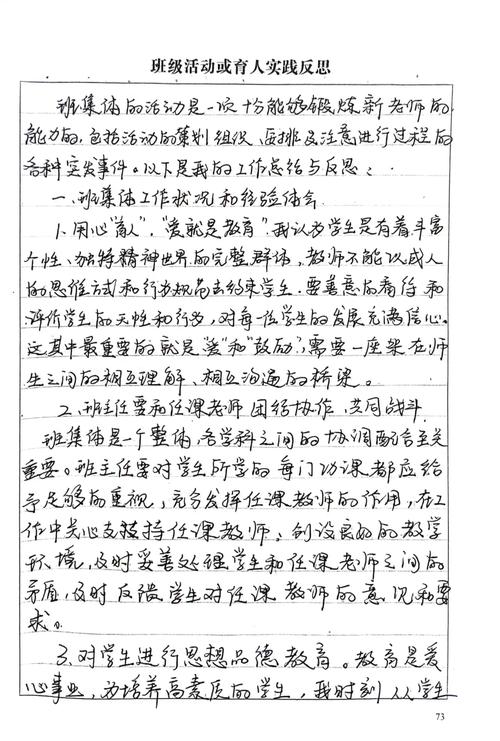 班级活动或育人实践反思
班集体的活动是一次十分能够锻炼新老师的
能力的,包括活动的策划组织、安排及注意进行过程的
各种突发事件。以下是我的工作总结与反思:
一、班集体工作状况和经验体会
1、用心“育人”,“爱就是教育”。我认为学生是有着丰富
个性、独特精神世界的完整群体,教师不能以成人
的思维方式和行为规范去约束学生。要善意的看待和
评价学生的天性和行为,对每一位学生的发展充满信心。
这其中最重要的就是“爱”和“鼓励”,需要一座架在师
生之间的相互理解、相互沟通的桥梁。
2、班主任要和任课老师团结协作、共同战斗
班集体是一个整体,各学科之间的协调配合至关
重要。班主任要对学生所学的每门功课都应给
予足够的重视,充分发挥任课教师的作用,在工
作中关心支持任课教师,创设良好的教学
环境,及时妥善处理学生和任课老师之间的
矛盾,及时反馈学生对任课教师的意见和要
求。
3、对学生进行思想品德教育。教育是爱
心事业,为培养高素质的学生,我时刻从学生
73